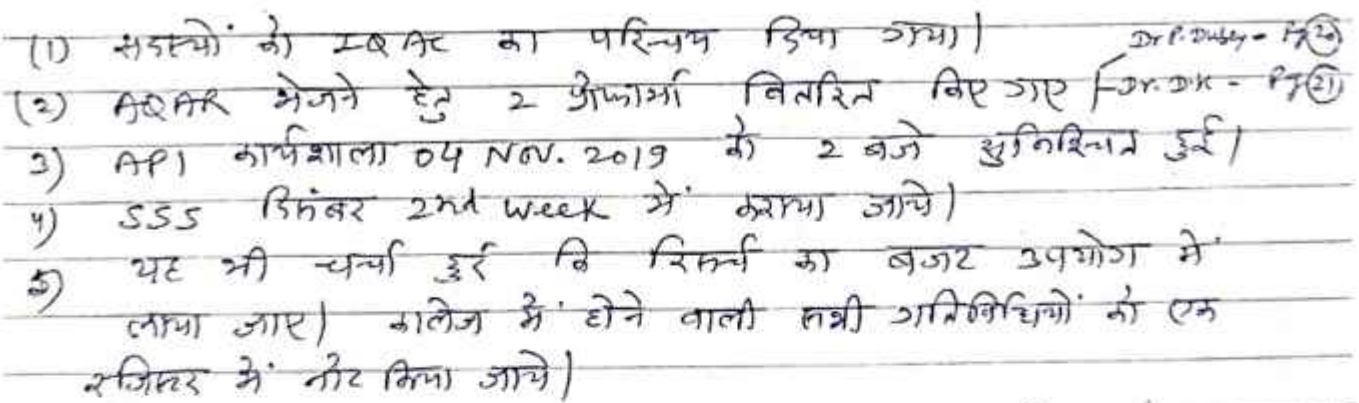 (1) सदस्यों को IQAC का परिचय दिया गया। Dr P. Dubey - Pg (20)
(2) AQAR भेजने हेतु 2 प्रोफार्मा वितरित किए गए Dr. DK - Pg (21)
3) API कार्यशाला 04 Nov. 2019 को 2 बजे सुनिश्चित हुई।
4) SSS दिसंबर 2nd week में कराया जाये।
5) यह भी चर्चा हुई कि रिसर्च का बजट उपयोग में
लाया जाए। कालेज में होने वाली सभी गतिविधियों को एक
रजिस्टर में नोट किया जाये।